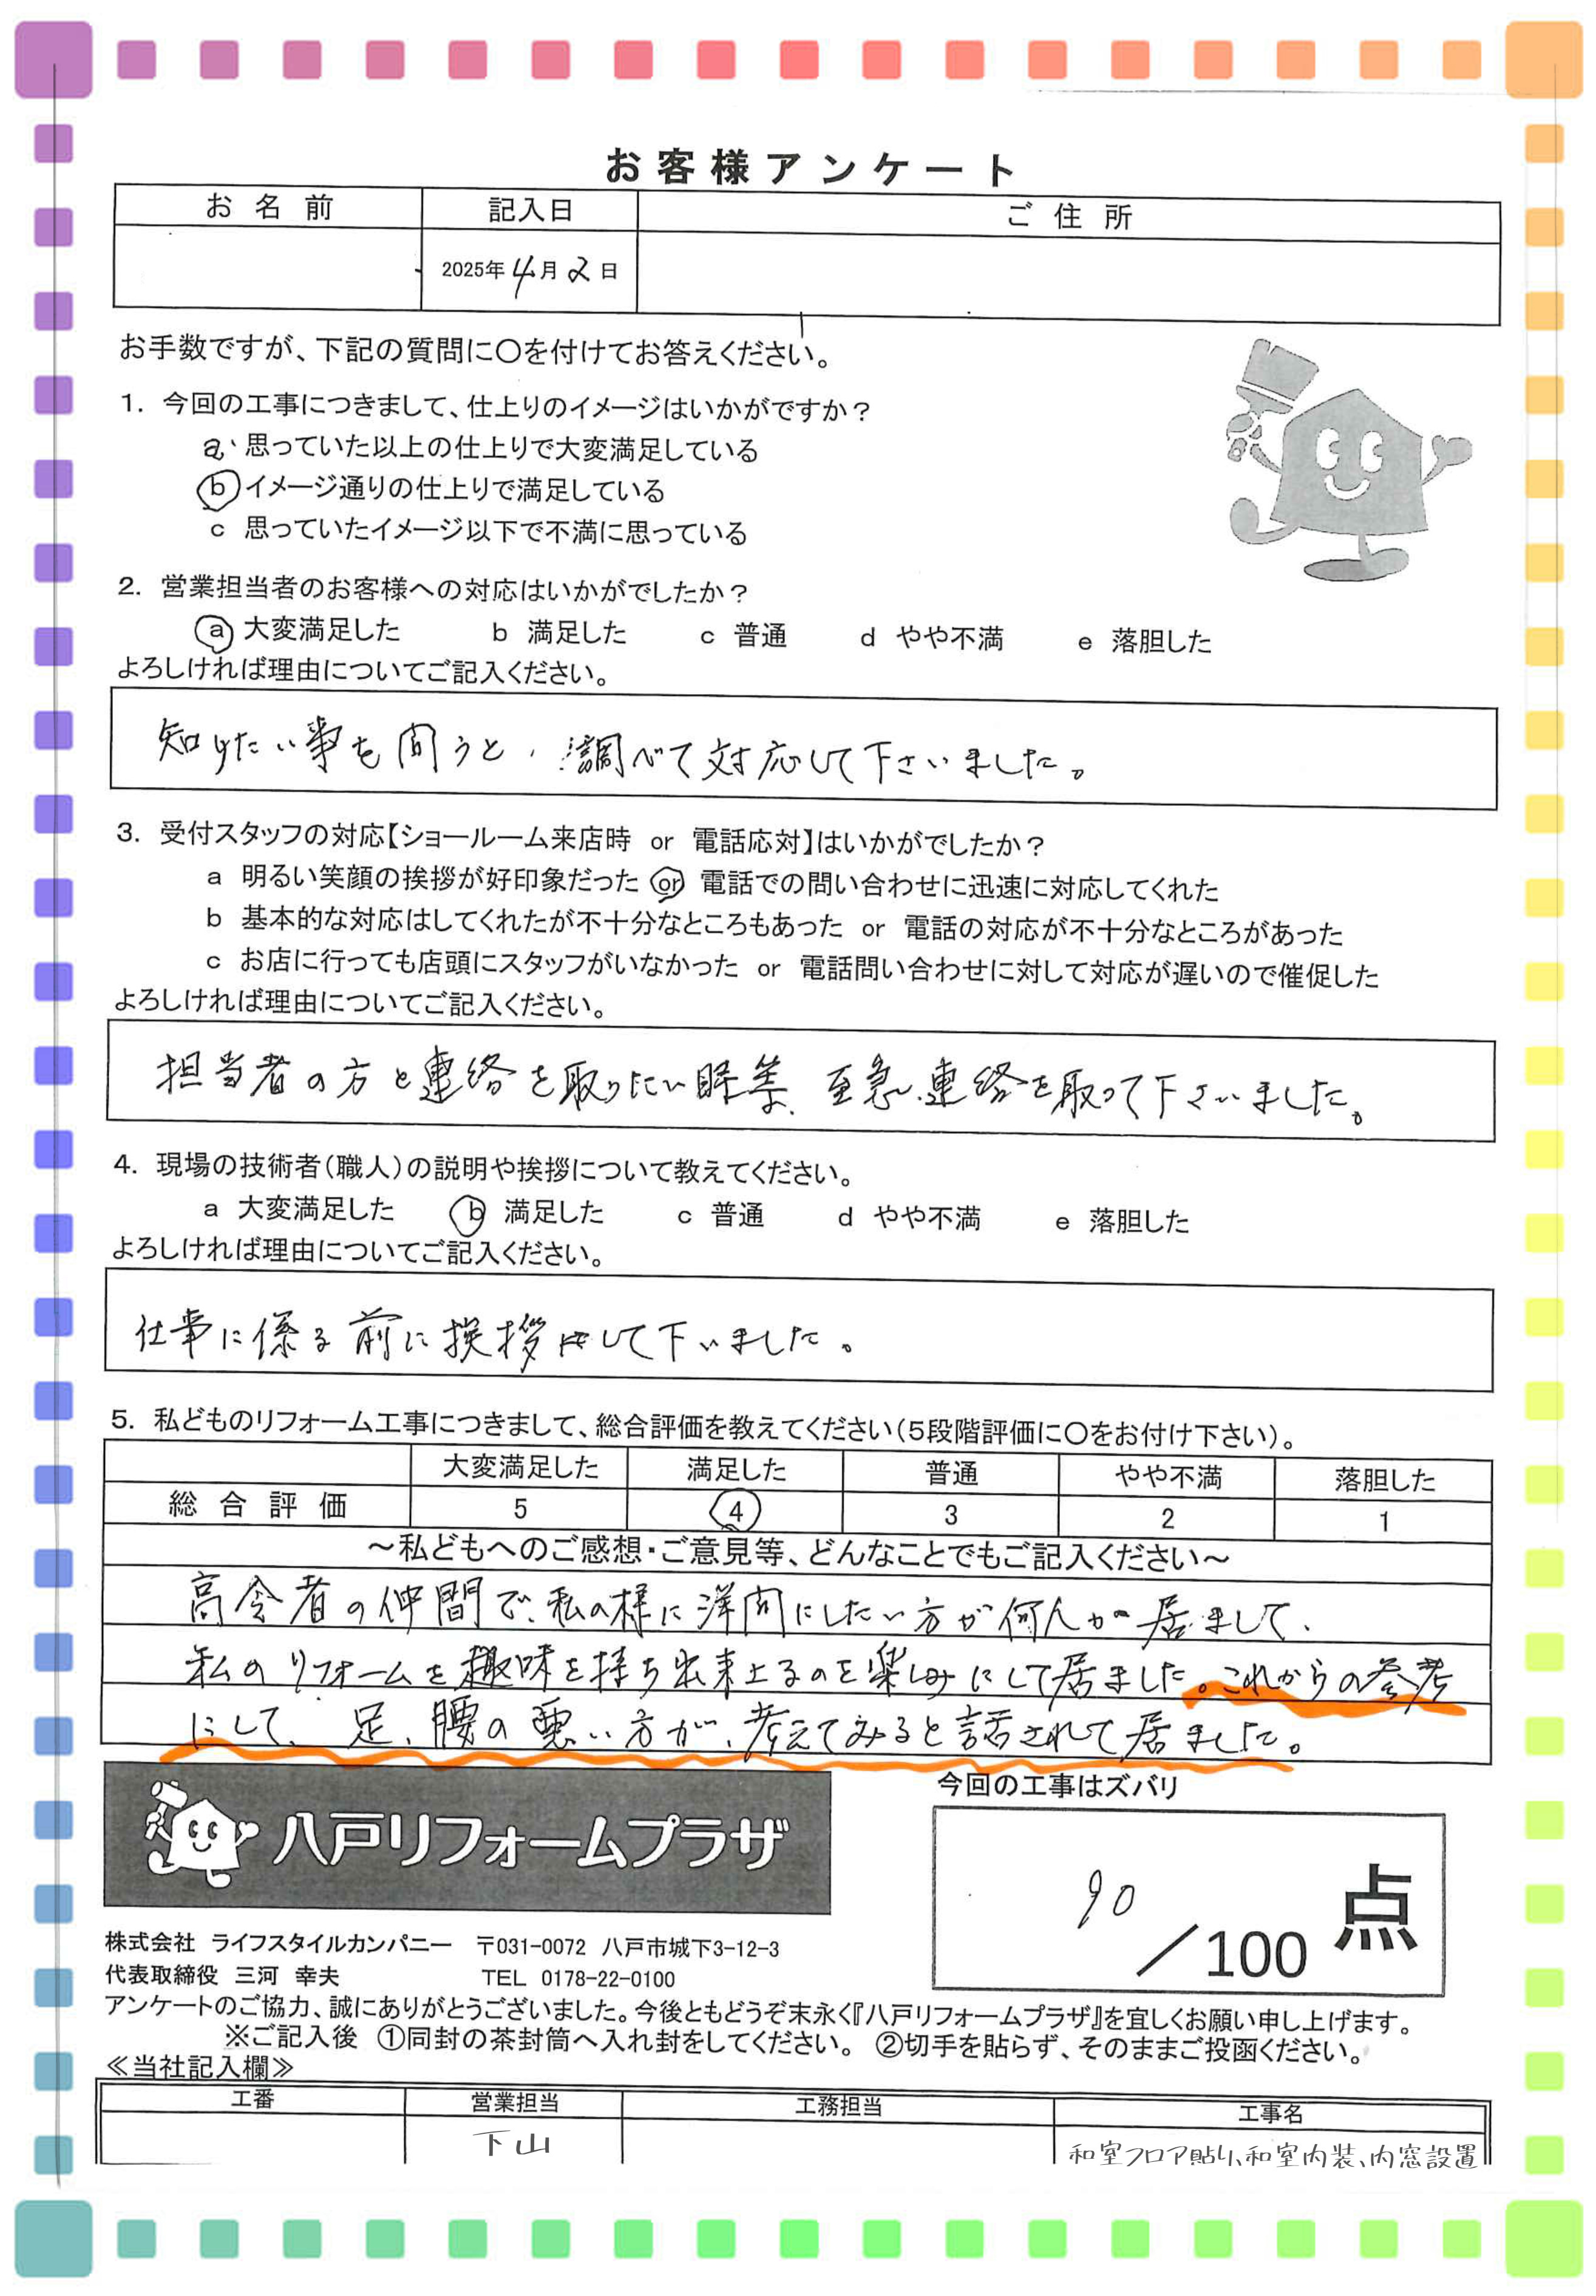 お客様アンケート
お名前 記入日 ご住所
2025年4月2日
お手数ですが、下記の質問に〇を付けてお答えください。
1. 今回の工事につきまして、仕上りのイメージはいかがですか？
a 思っていた以上の仕上りで大変満足している
b イメージ通りの仕上りで満足している
c 思っていたイメージ以下で不満に思っている
2. 営業担当者のお客様への対応はいかがでしたか？
a 大変満足した b 満足した c 普通 d やや不満 e 落胆した
よろしければ理由についてご記入ください。
知りたい事を問うと、調べて対応して下さいました。
3. 受付スタッフの対応【ショールーム来店時 or 電話応対】はいかがでしたか？
a 明るい笑顔の挨拶が好印象だった or 電話での問い合わせに迅速に対応してくれた
b 基本的な対応はしてくれたが不十分なところもあった or 電話の対応が不十分なところがあった
c お店に行っても店頭にスタッフがいなかった or 電話問い合わせに対して対応が遅いので催促した
よろしければ理由についてご記入ください。
担当者の方と連絡を取りたい時等、至急、連絡を取って下さいました。
4. 現場の技術者（職人）の説明や挨拶について教えてください。
a 大変満足した b 満足した c 普通 d やや不満 e 落胆した
よろしければ理由についてご記入ください。
仕事に係る前に挨拶はして下いました。
5. 私どものリフォーム工事につきまして、総合評価を教えてください（5段階評価に〇をお付け下さい）。
大変満足した 満足した 普通 やや不満 落胆した
総合評価 5 4 3 2 1
～私どもへのご感想・ご意見等、どんなことでもご記入ください～
高令者の仲間で、私の様に洋間にしたい方が何人か居まして、
私のリフォームを趣味を持ち出来上るのを楽しみにして居ました。これからの参考
にして、足、腰の悪い方が、考えてみると話されて居ました。
八戸リフォームプラザ
今回の工事はズバリ
90／100点
株式会社 ライフスタイルカンパニー 〒031-0072 八戸市城下3-12-3
代表取締役 三河 幸夫 TEL 0178-22-0100
アンケートのご協力、誠にありがとうございました。今後ともどうぞ末永く『八戸リフォームプラザ』を宜しくお願い申し上げます。
※ご記入後 ①同封の茶封筒へ入れ封をしてください。 ②切手を貼らず、そのままご投函ください。
≪当社記入欄≫
工番 営業担当 工務担当 工事名
下山 和室フロア貼り、和室内装、内窓設置